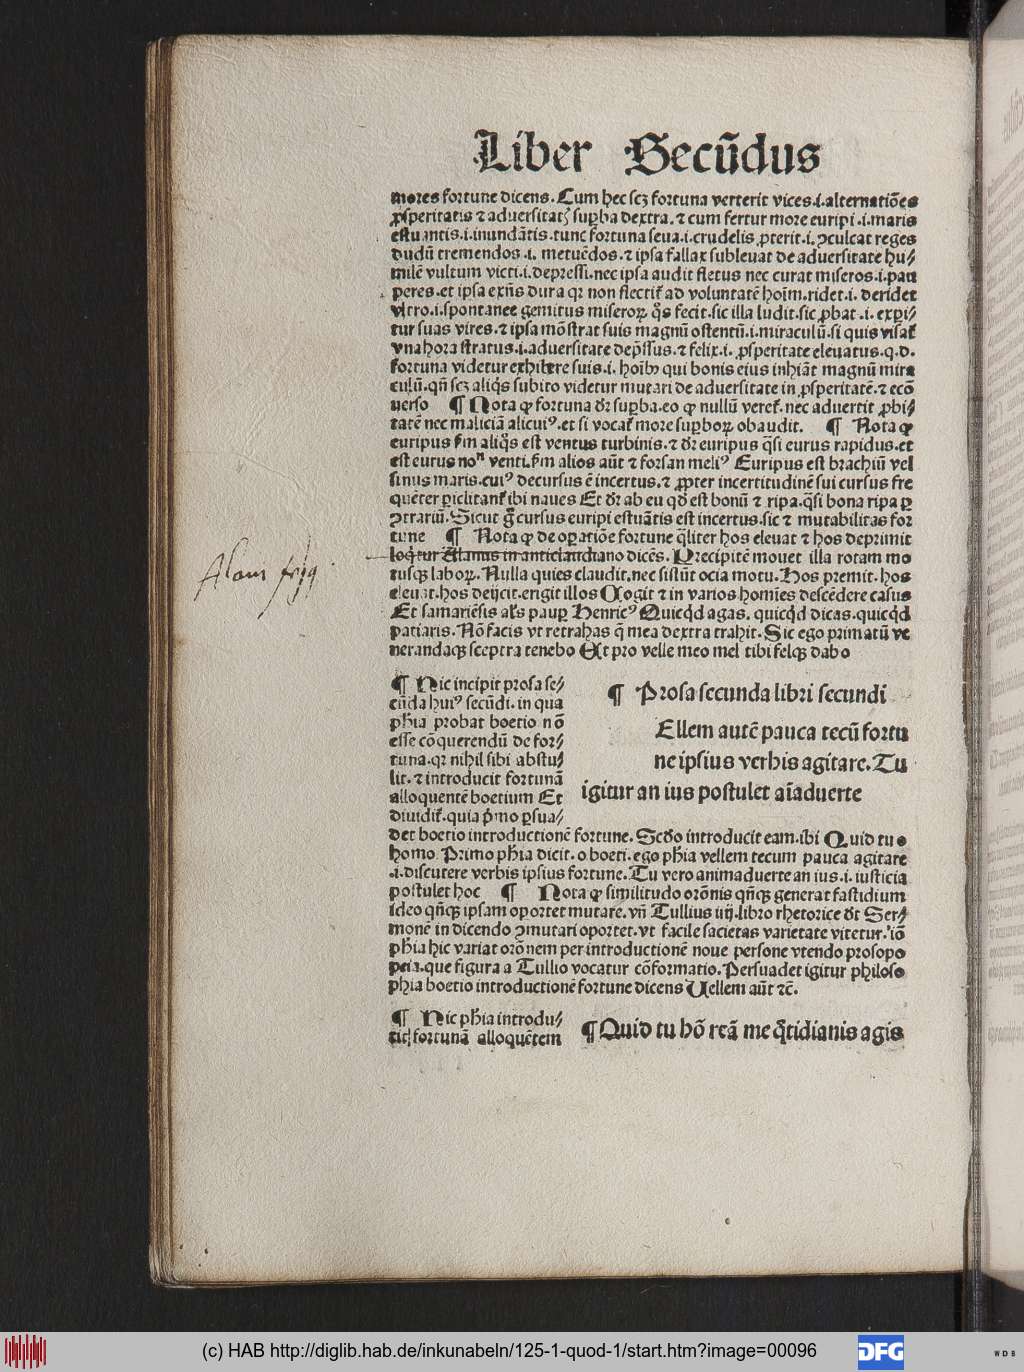 Liber Secūdus
mores fortune dicens. Cum hec scꝫ fortuna verterit vices .i. alternatiōes
ꝓsperitatis ⁊ aduersitatꝭ suꝑba dextra. ⁊ cum fertur more euripi .i. maris
estuantis .i. inundātis. tunc fortuna seua .i. crudelis ꝓterit .i. ꝯculcat reges
dudū tremendos .i. metuēdos. ⁊ ipsa fallax subleuat de aduersitate hu⸗
milē vultum victi .i. depressi. nec ipsa audit fletus nec curat miseros .i. pau
peres. et ipsa exñs dura qꝛ non flectit᷑ ad voluntatē hoīm. ridet .i. deridet
vltro .i. spontanee gemitus miseroꝝ q̄s fecit. sic illa ludit. sic ꝓbat .i. exꝑi⸗
tur suas vires. ⁊ ipsa mōstrat suis magnū ostentū .i. miraculū. si quis visat᷑
vna hora stratus .i. aduersitate dep̄ssus. ⁊ felix .i. ꝓsperitate eleuatus. q.d.
fortuna videtur exhibere suis .i. hoībꝰ qui bonis eius inhiāt magnū mira
culū. qñ scꝫ aliq̄s subito videtur mutari de aduersitate in ꝓsperitatē. ⁊ ecō
uerso ¶ Nota ꝙ fortuna dr̄ suꝑba. eo ꝙ nullū veret᷑. nec aduertit ꝓbi⸗
tatē nec maliciā alicuiꝰ. et si vocat᷑ more suꝑboꝝ obaudit. ¶ Nota ꝙ
euripus ẜm aliq̄s est ventus turbinis. ⁊ dr̄ euripus q̄si eurus rapidus. et
est eurus noⁿ venti. ẜm alios aūt ⁊ forsan meliꝰ Euripus est brachiū vel
sinus maris. cuiꝰ decursus ē incertus. ⁊ ꝓpter incertitudinē sui cursus fre
quēter ꝑiclitant᷑ ibi naues Et dr̄ ab eu qd̄ est bonū ⁊ ripa. q̄si bona ripa ꝑ
ꝯtrariū. Sicut g̊ cursus euripi estuātis est incertus. sic ⁊ mutabilitas for
tune ¶ Nota ꝙ de oꝑatiōe fortune q̄liter hos eleuat ⁊ hos deprimit
loq̄tur Alanus in anticlaudiano dicēs. Precipitē mouet illa rotam mo
tusqꝫ laboꝝ. Nulla quies claudit. nec sistūt ocia motu. Hos premit. hos
eleuat. hos deijcit. erigit illos Cogit ⁊ in varios homīes descēdere casus
Et samariēsis al̓s pauꝑ Henricꝰ Quicq̄d agas. quicq̄d dicas. quicq̄d
patiaris. Nō facis vt retrahas q̄ mea dextra trahit. Sic ego primatū ve
nerandaqꝫ sceptra tenebo Et pro velle meo mel tibi felqꝫ dabo
Alani
¶ Hic incipit prosa se⸗
cūda huiꝰ secūdi. in qua
pħia probat boetio nō
esse cōquerendū de for⸗
tuna. qꝛ nihil sibi abstu⸗
lit. ⁊ introducit fortunā
alloquentē boetium Et
diuidit᷑. quia p̄mo ꝑsua⸗
¶ Prosa secunda libri secundi
Ellem autē pauca tecū fortu
ne ipsius verbis agitare. Tu
igitur an ius postulet aīaduerte
det boetio introductionē fortune. Scd̄o introducit eam. ibi Quid tu o
homo Primo pħia dicit. o boeti. ego pħia vellem tecum pauca agitare
.i. discutere verbis ipsius fortune. Tu vero animaduerte an ius .i. iusticia
postulet hoc ¶ Nota ꝙ similitudo orōnis qñqꝫ generat fastidium
ideo qñqꝫ ipsam oportet mutare. vñ Tullius iiij. libro rhetorice dt̄ Ser⸗
monē in dicendo ꝯmutari oportet. vt facile sacietas varietate vitetur. iō
pħia hic variat orōnem per introductionē noue persone vtendo prosopo
peia. que figura a Tullio vocatur cōformatio. Persuadet igitur philoso
phia boetio introductionē fortune dicens Uellem aūt ⁊c̄.
¶ Hic pħia introdu⸗
cit fortunā alloquētem
¶ Quid tu hō reā me q̄tidianis agis
(c) HAB http://diglib.hab.de/inkunabeln/125-1-quod-1/start.htm?image=00096
DFG
WDB